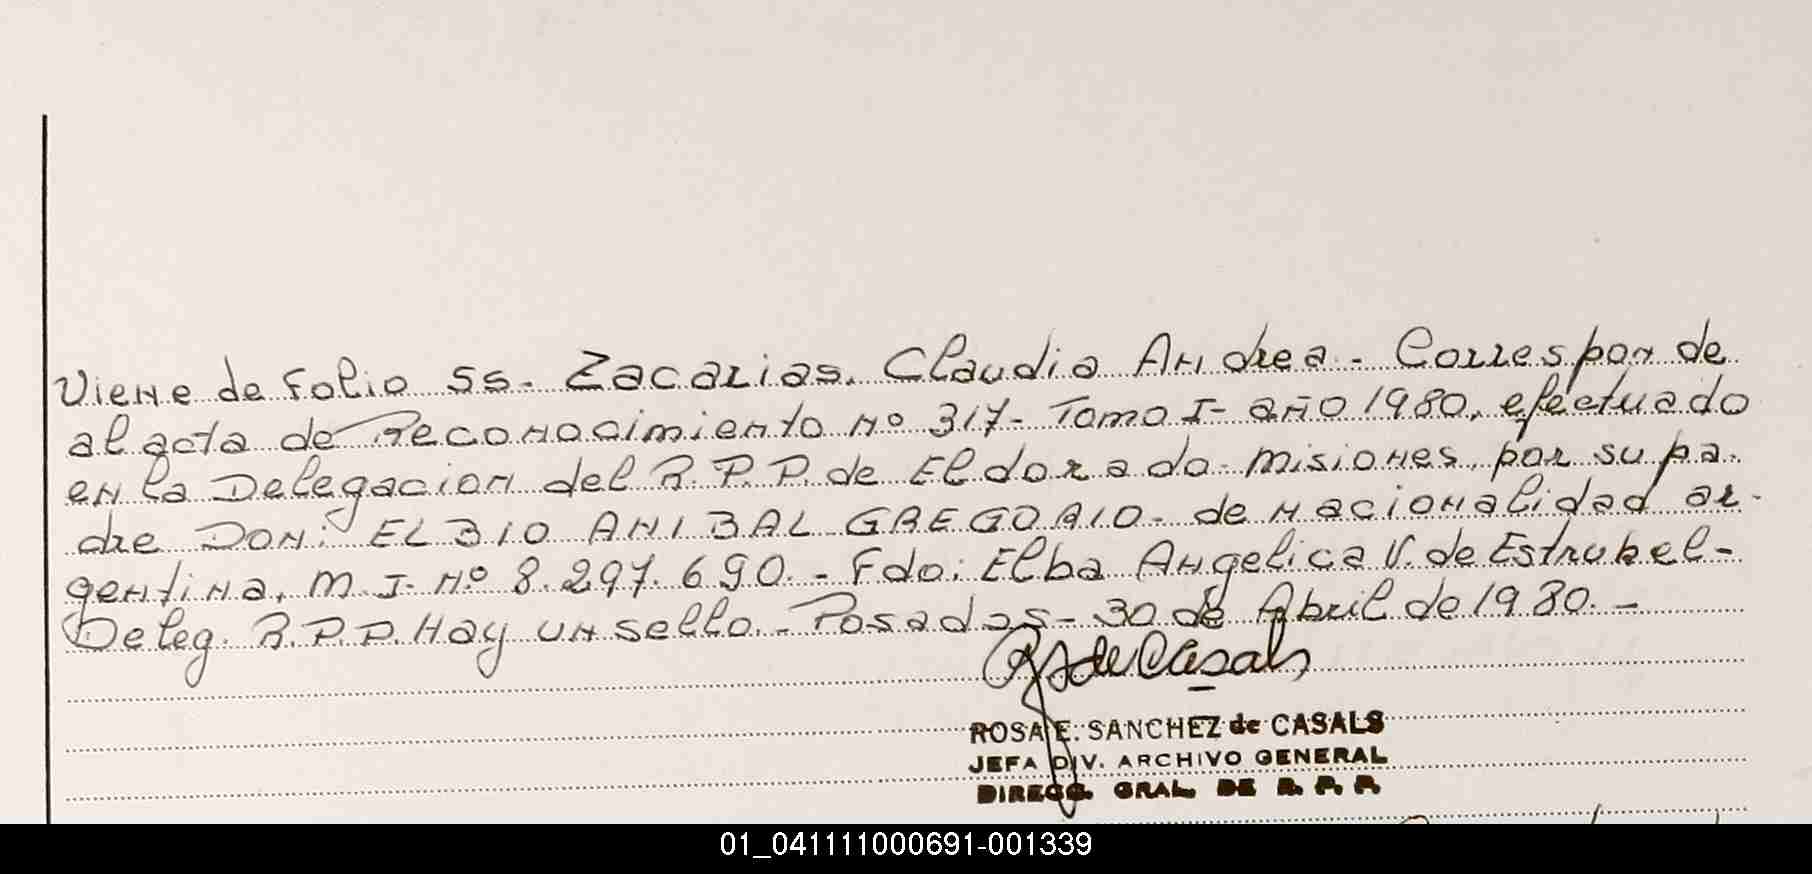 Viene de Folio 55. Zacarias, Claudia Andrea - Correspon de
al acta de Reconocimiento Nº 317- Tomo I- año 1980, efectuado
en la Delegacion del R.P.P. de Eldorado - Misiones, por su pa-
dre Don: ELBIO ANIBAL GREGORIO - de nacionalidad ar-
gentina, M.I. Nº 8.297.690.- Fdo: Elba Angelica V. de Estrubel-
Deleg. R.P.P. Hay un sello.- Posadas - 30 de Abril de 1980.-
RSdeCasals
ROSA E. SANCHEZ de CASALS
JEFA DIV. ARCHIVO GENERAL
DIRECC. GRAL. DE R. P. P.
01_041111000691-001339